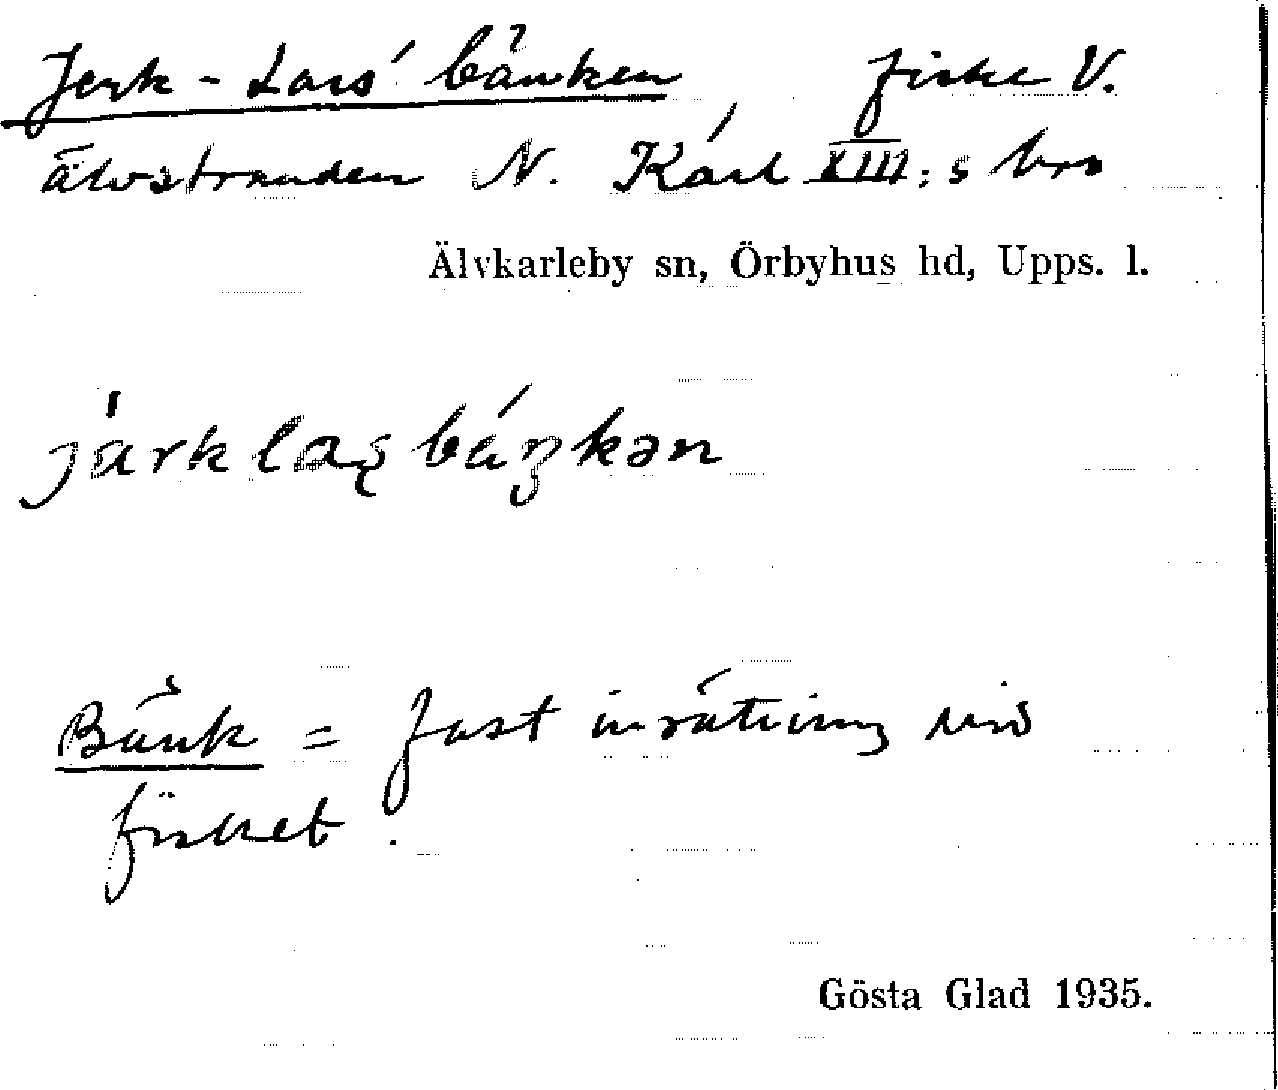 Jerk-Lars' bänken, fiske V.
älvstranden N. Karl XIII:s bro
Älvkarleby sn, Örbyhus hd, Upps. l.
járklaʂbáŋkən
Bänk = fast inrättning vid
fisket.
Gösta Glad 1935.